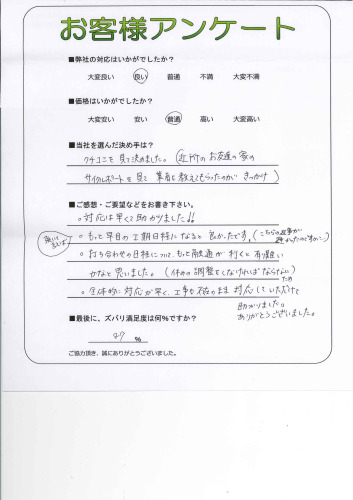 お客様アンケート
■弊社の対応はいかがでしたか?
大変良い 良い 普通 不満 大変不満
■価格はいかがでしたか?
大変安い 安い 普通 高い 大変高い
■当社を選んだ決め手は?
クチコミを見て決めました。(近所のお友達の家の
サイクルポートを見て 業者を教えてもらったのがきっかけ)
■ご感想・ご要望などをお書き下さい。
○対応は早くて助かりました!!
強いて言えば
○もっと早目の工期日程になると良かったです。(こちらの
○打ち合わせの日程については、もっと融通が利くと有り難い
かなと思いました。(休みの調整をしなければならないため)
○全体的に対応が早く、工事も不在のまま対応していただけて
助かりました。
ありがとうございました。
■最後に、ズバリ満足度は何%ですか?
%
ご協力頂き、誠にありがとうございました。